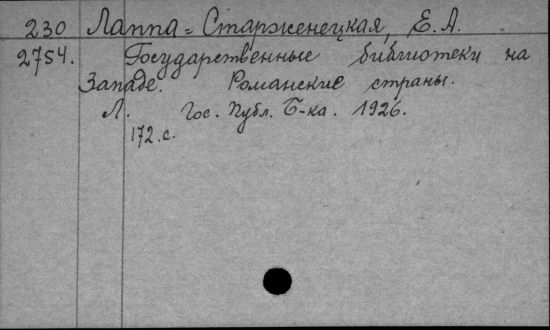 230 Лаппа-Старженецкая, Е. А.
2754. Государственные библиотеки на
Западе. Романские страны.
Л. Гос. Публ. Б-ка. 1926.
172.с.